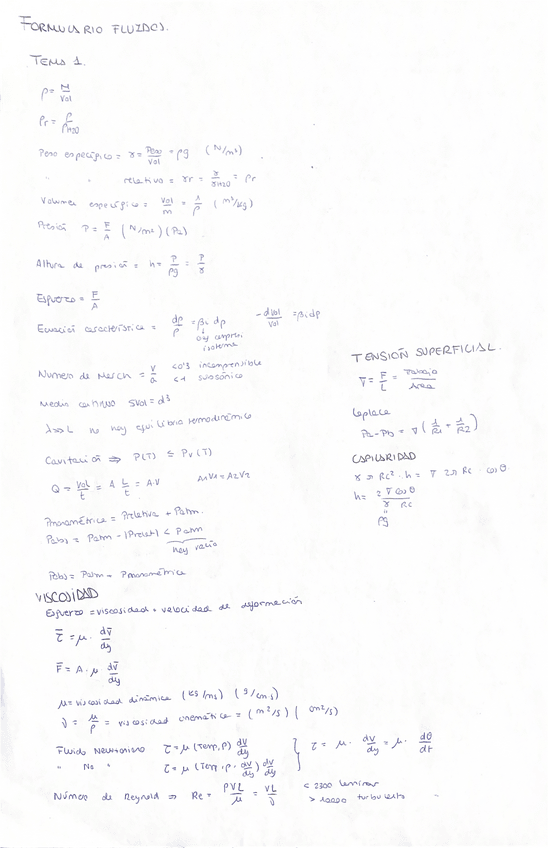 FORMULARIO FLUIDOS.
TEMA 1.
ρ = M/Vol
ρr = ρ/ρH2O
Peso específico = γ = Peso/Vol = ρg (N/m³)
" " relativo = γr = γ/γH2O = ρr
Volumen específico = Vol/m = 1/ρ (m³/kg)
Presión P = F/A (N/m²) (Pa)
Altura de presión = h = P/ρg = P/γ
Esfuerzo = F/A
Ecuación característica = dρ/ρ = βi dp -dVol/Vol = βi dp
isoterma
Número de March = V/a <0'3 incompresible
<1 subsónico
Medio continuo δVol = d³
λ>>L no hay equilibrio termodinámico
Cavitación ⇒ P(T) ≤ Pv(T)
Q = Vol/t = A L/t = A·V A1V1 = A2V2
Pmanométrica = Prelativa + Patm.
Pabs = Patm - |Prelat| < Patm
hay vacío
Pabs = Patm - Pmanométrica
TENSIÓN SUPERFICIAL.
∇ = F/L = Trabajo/Area
Laplace
Pa - Pb = ∇ (1/R1 + 1/R2)
CAPILARIDAD
γ π Rc² · h = ∇ 2π Rc · cos θ
h = 2 ∇ cos θ / γ Rc
"
ρg
VISCOSIDAD
Esfuerzo = viscosidad · velocidad de deformación
τ̄ = μ · dv̄/dy
F̄ = A · μ dv̄/dy
μ = viscosidad dinámica (kg/ms) (g/cm·s)
ν = μ/ρ = viscosidad cinemática = (m²/s) (cm²/s)
Fluido Newtoniano τ = μ (Temp, P) dv/dy } τ = μ · dv/dy = μ · dθ/dt
" No " τ = μ (Temp, P, dv/dy) dv/dy
Número de Reynold ⇒ Re = ρVL/μ = VL/ν < 2300 laminar
> 10000 turbulento